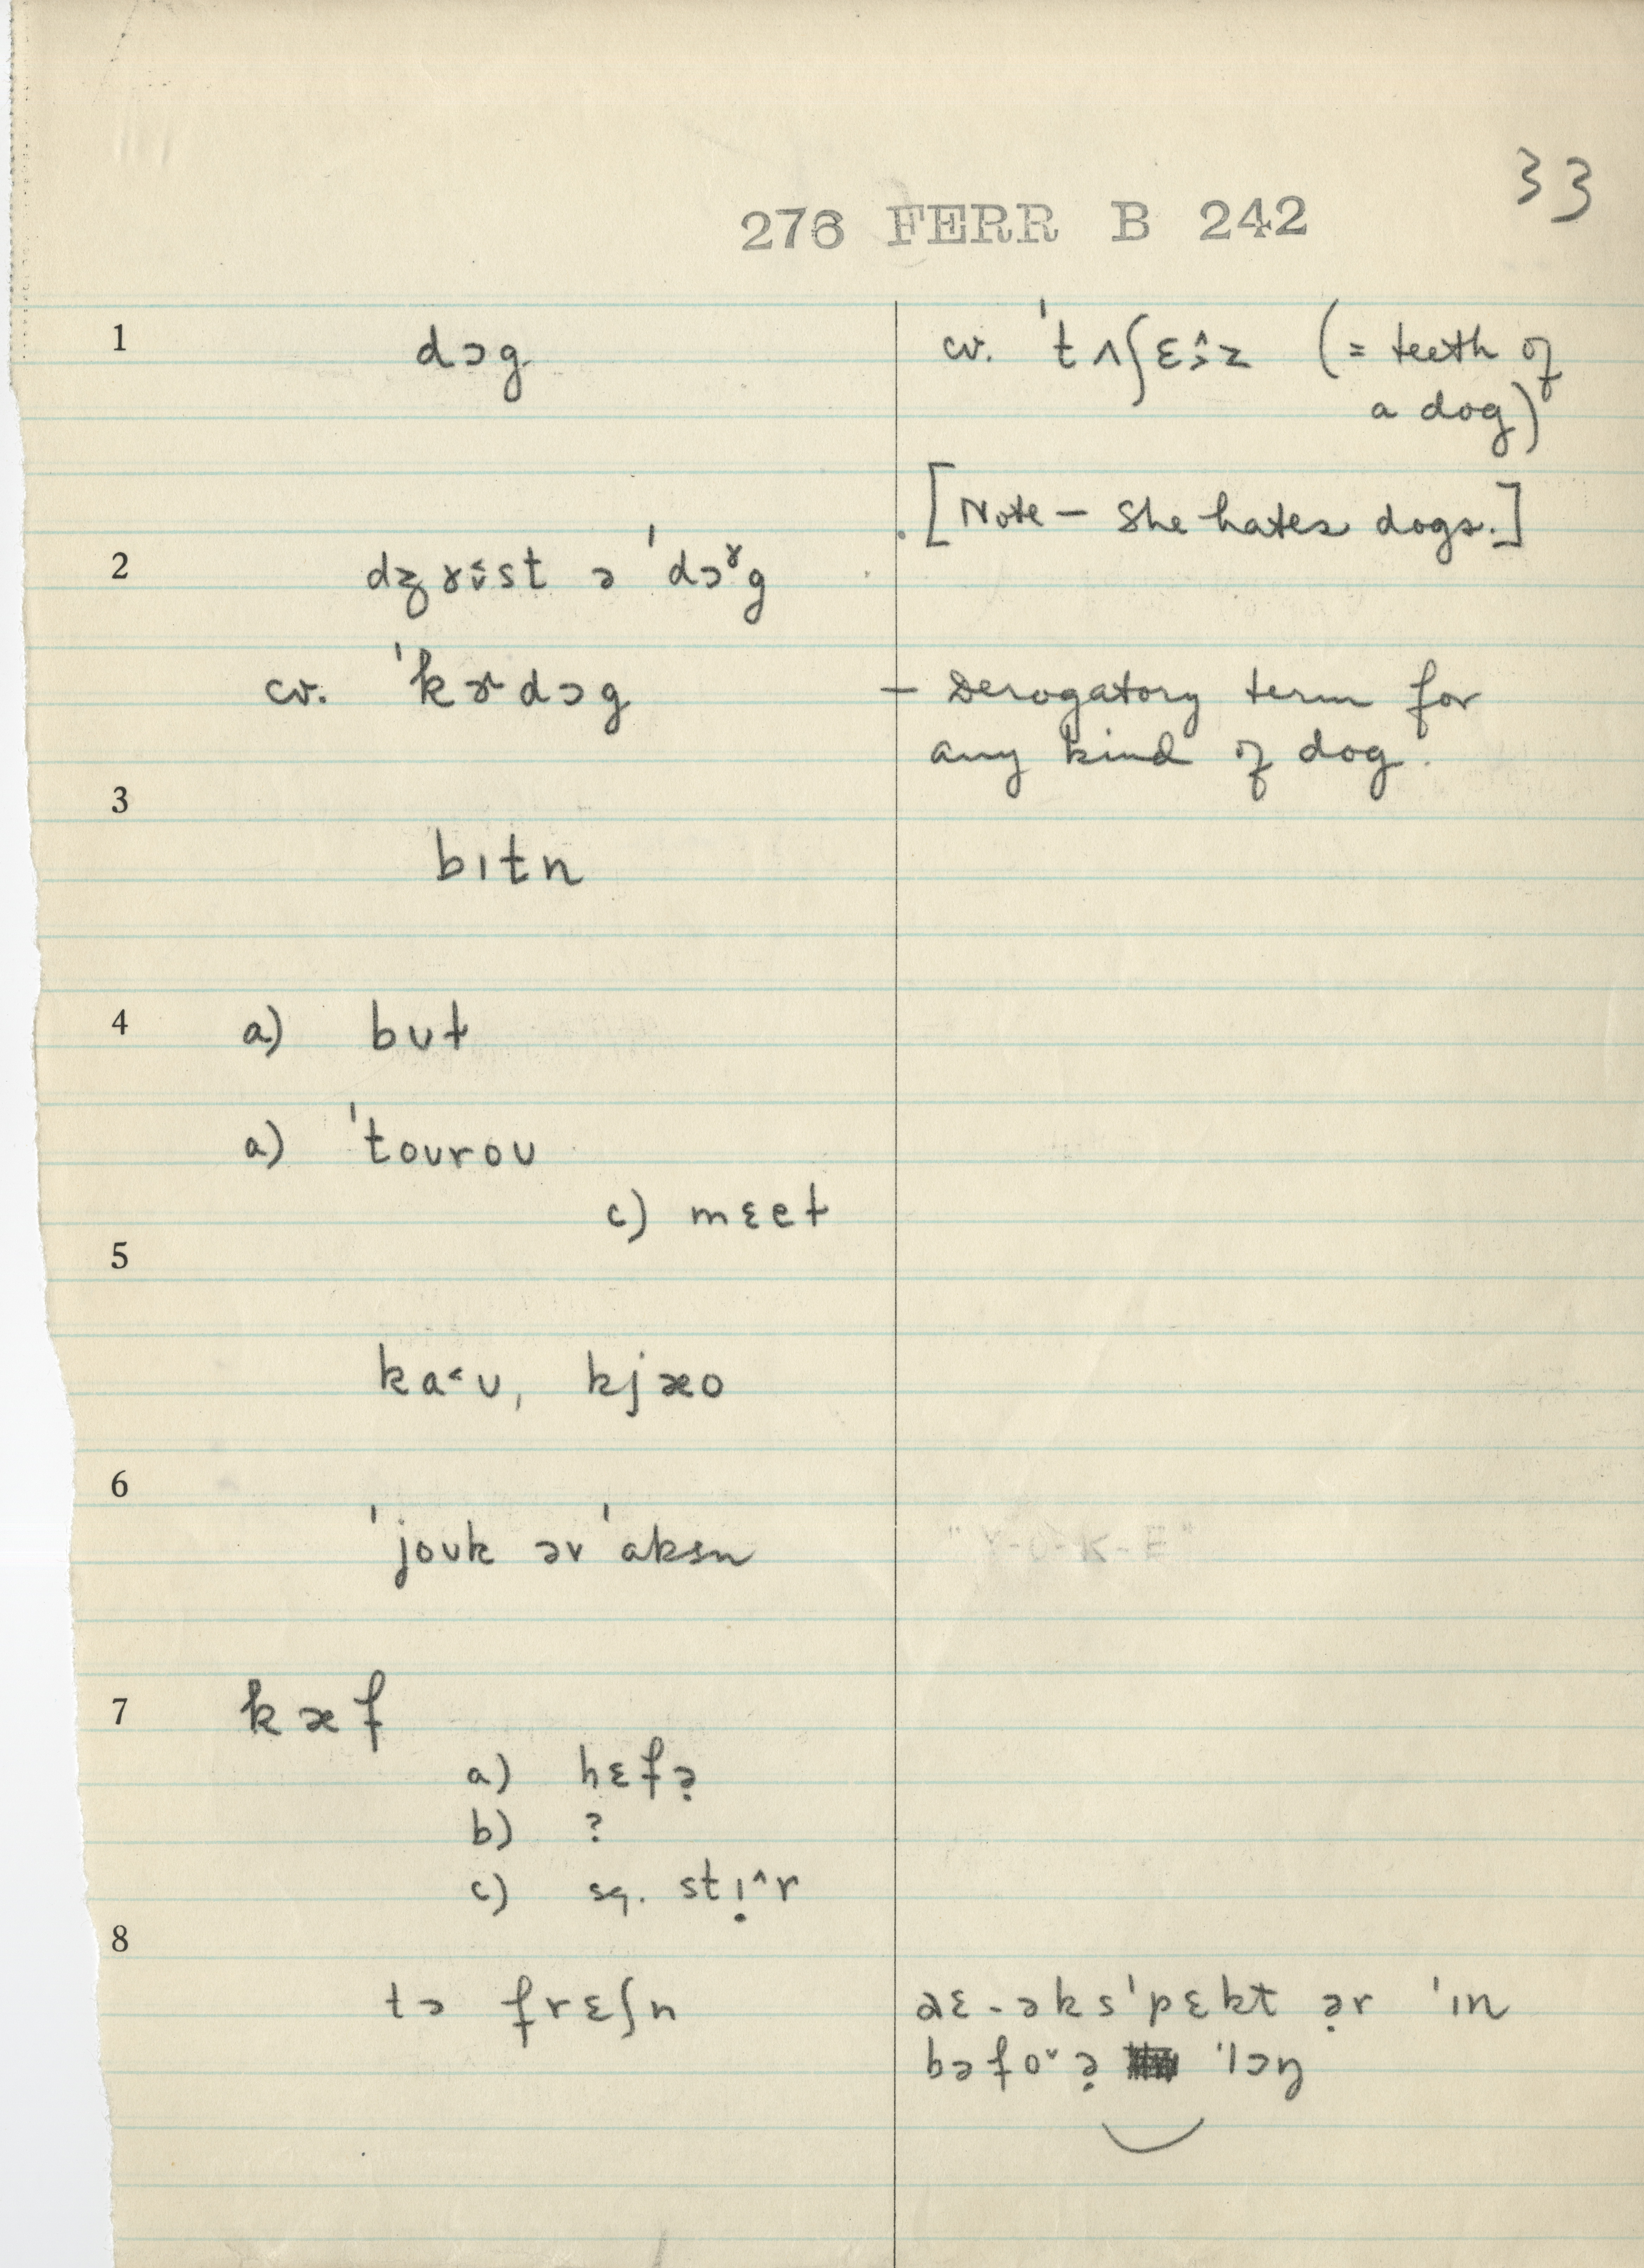 33
276 FERR B 242
1 dɔg cv. ˈtʌʃɛ̂z (= teeth of
a dog)
[Note – She hates dogs.]
2 ə ˈdɔˠg
cv. ˈkɚdɔg – Derogatory term for
any kind of dog.
3
bɪtn
4 a) bʊt
a) ˈtoʊroʊ
c) mɛet
5
ka˂ʊ, kjæo
6
ˈjoʊk əv ˈaksn "Y-O-K-E"
7 kæf
a) hɛfə̣
b) ?
c) sq. stɪ̣^r
8
tə frɛʃn aɛ-əksˈpɛkt ə̣r ˈɪn
bəfo˅ə̣ ˈlɔŋ